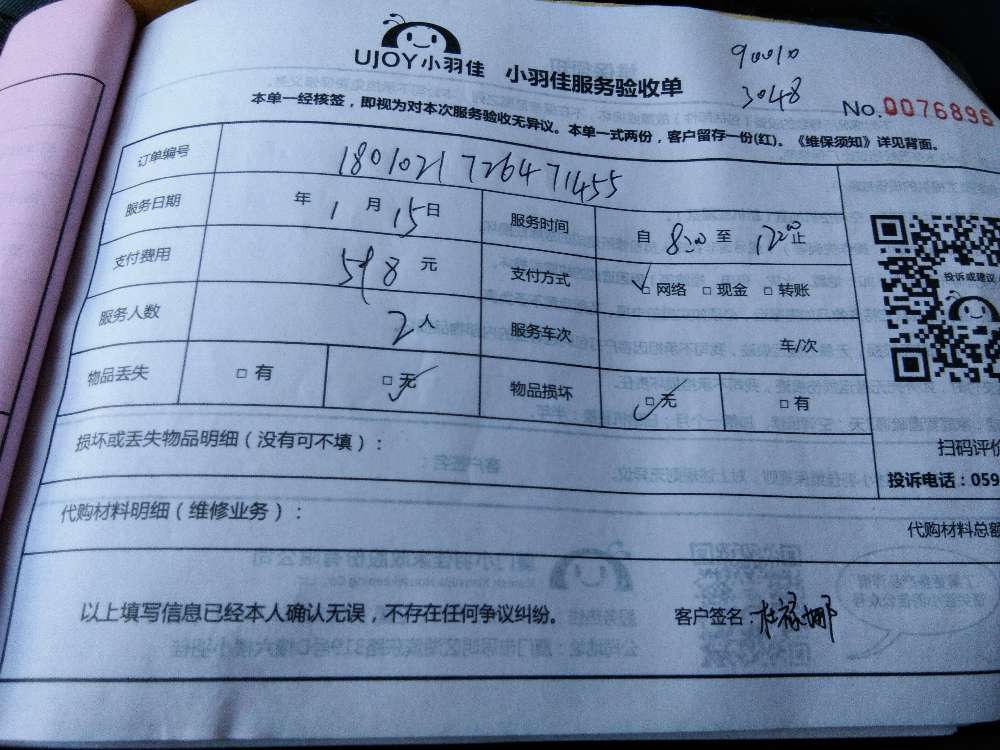 UJOY小羽佳 小羽佳服务验收单
90010
3048
No.0076896
本单一经核签，即视为对本次服务验收无异议。本单一式两份，客户留存一份(红)。《维保须知》详见背面。
订单编号 180102172647 1455
服务日期 年 1 月 15 日 服务时间 自 8:00 至 1200 止
支付费用 598 元 支付方式 □ 网络 □ 现金 □ 转账
投诉或建议
服务人数 2人 服务车次 车/次
物品丢失 □ 有 □ 无 物品损坏 □ 无 □ 有
损坏或丢失物品明细（没有可不填）：
扫码评价
投诉电话：059
代购材料明细（维修业务）：
代购材料总额
以上填写信息已经本人确认无误，不存在任何争议纠纷。 客户签名：